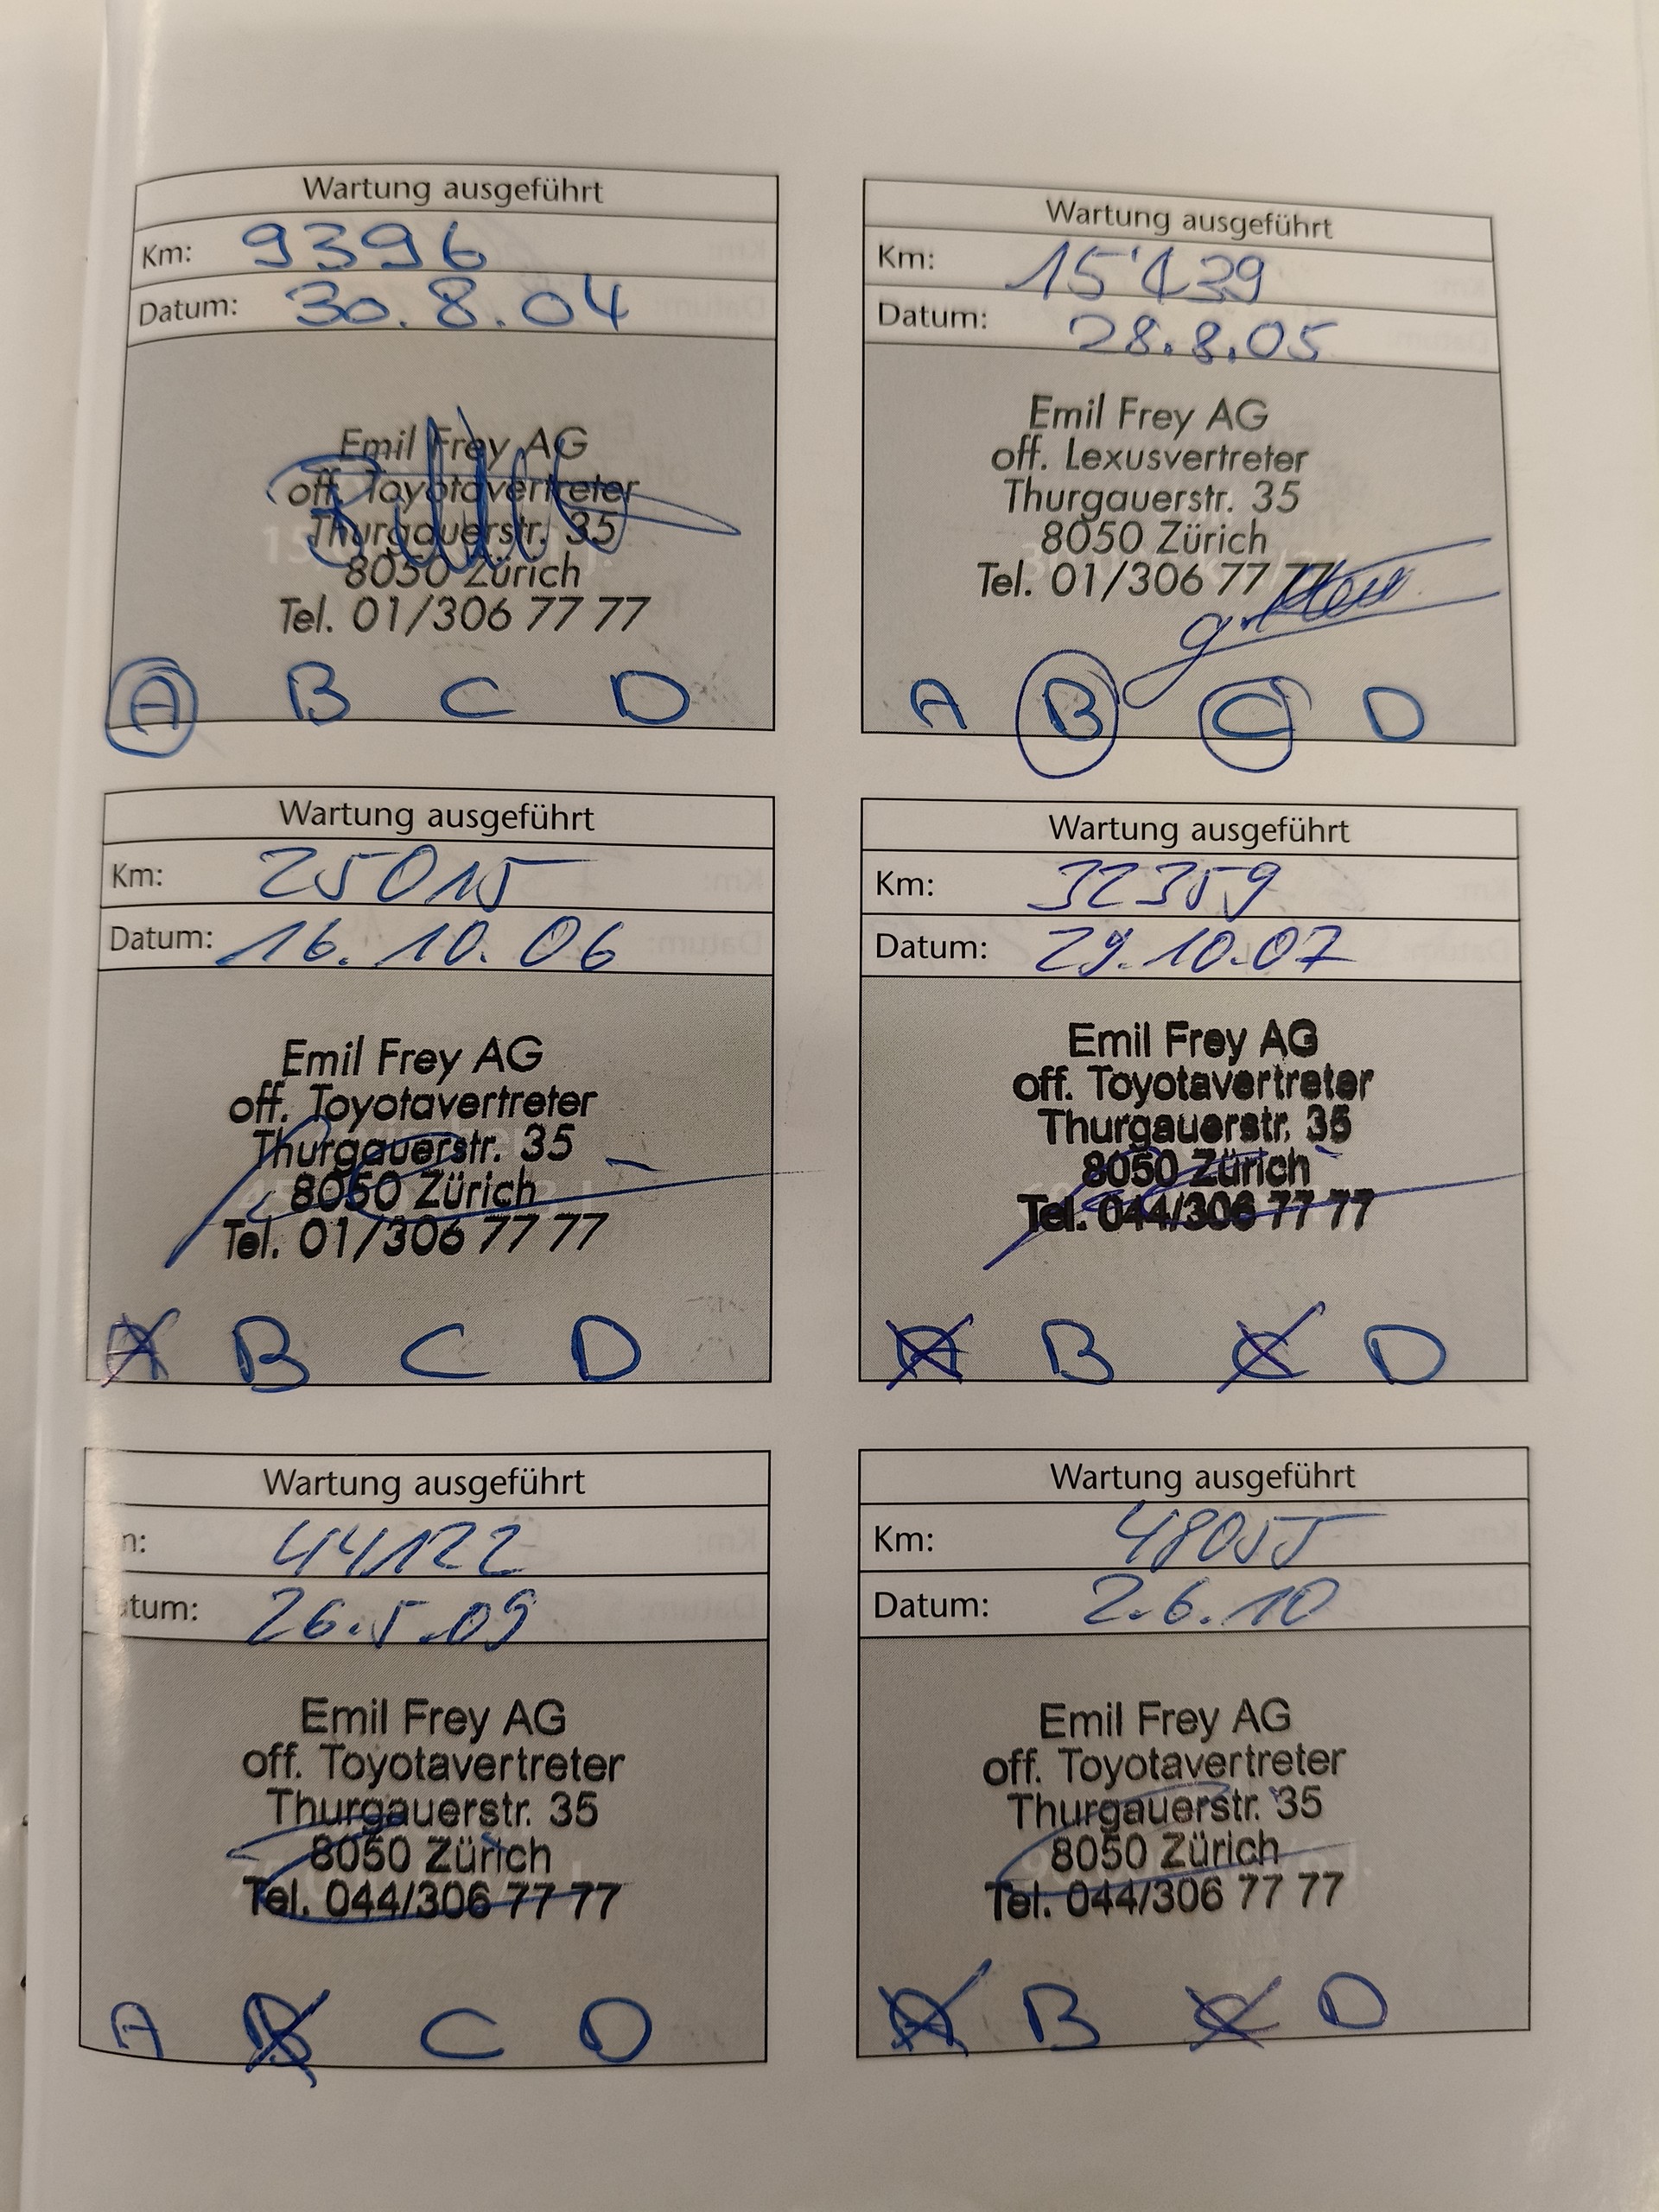 Wartung ausgeführt
Km: 9396
Datum: 30.8.04
Emil Frey AG
off. Toyotavertreter
Thurgauerstr. 35
8050 Zürich
Tel. 01/306 77 77
A B C D
Wartung ausgeführt
Km:
Datum: 28.8.05
Emil Frey AG
off. Lexusvertreter
Thurgauerstr. 35
8050 Zürich
Tel. 01/306 77 77
A B C D
Wartung ausgeführt
Km: 25015
Datum: 16.10.06
Emil Frey AG
off. Toyotavertreter
Thurgauerstr. 35
8050 Zürich
Tel. 01/306 77 77
A B C D
Wartung ausgeführt
Km: 32359
Datum: 29.10.07
Emil Frey AG
off. Toyotavertreter
Thurgauerstr. 35
8050 Zürich
Tel. 044/306 77 77
A B C D
Wartung ausgeführt
n: 44122
atum: 26.5.09
Emil Frey AG
off. Toyotavertreter
Thurgauerstr. 35
8050 Zürich
Tel. 044/306 77 77
A B C D
Wartung ausgeführt
Km: 48055
Datum: 2.6.10
Emil Frey AG
off. Toyotavertreter
Thurgauerstr. 35
8050 Zürich
Tel. 044/306 77 77
A B C D